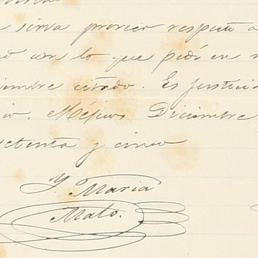 se sirva proveer respecto a
con lo que pedí en
citado. Es justicia
México, Diciembre
setenta y cinco
Y. Maria
Mato.